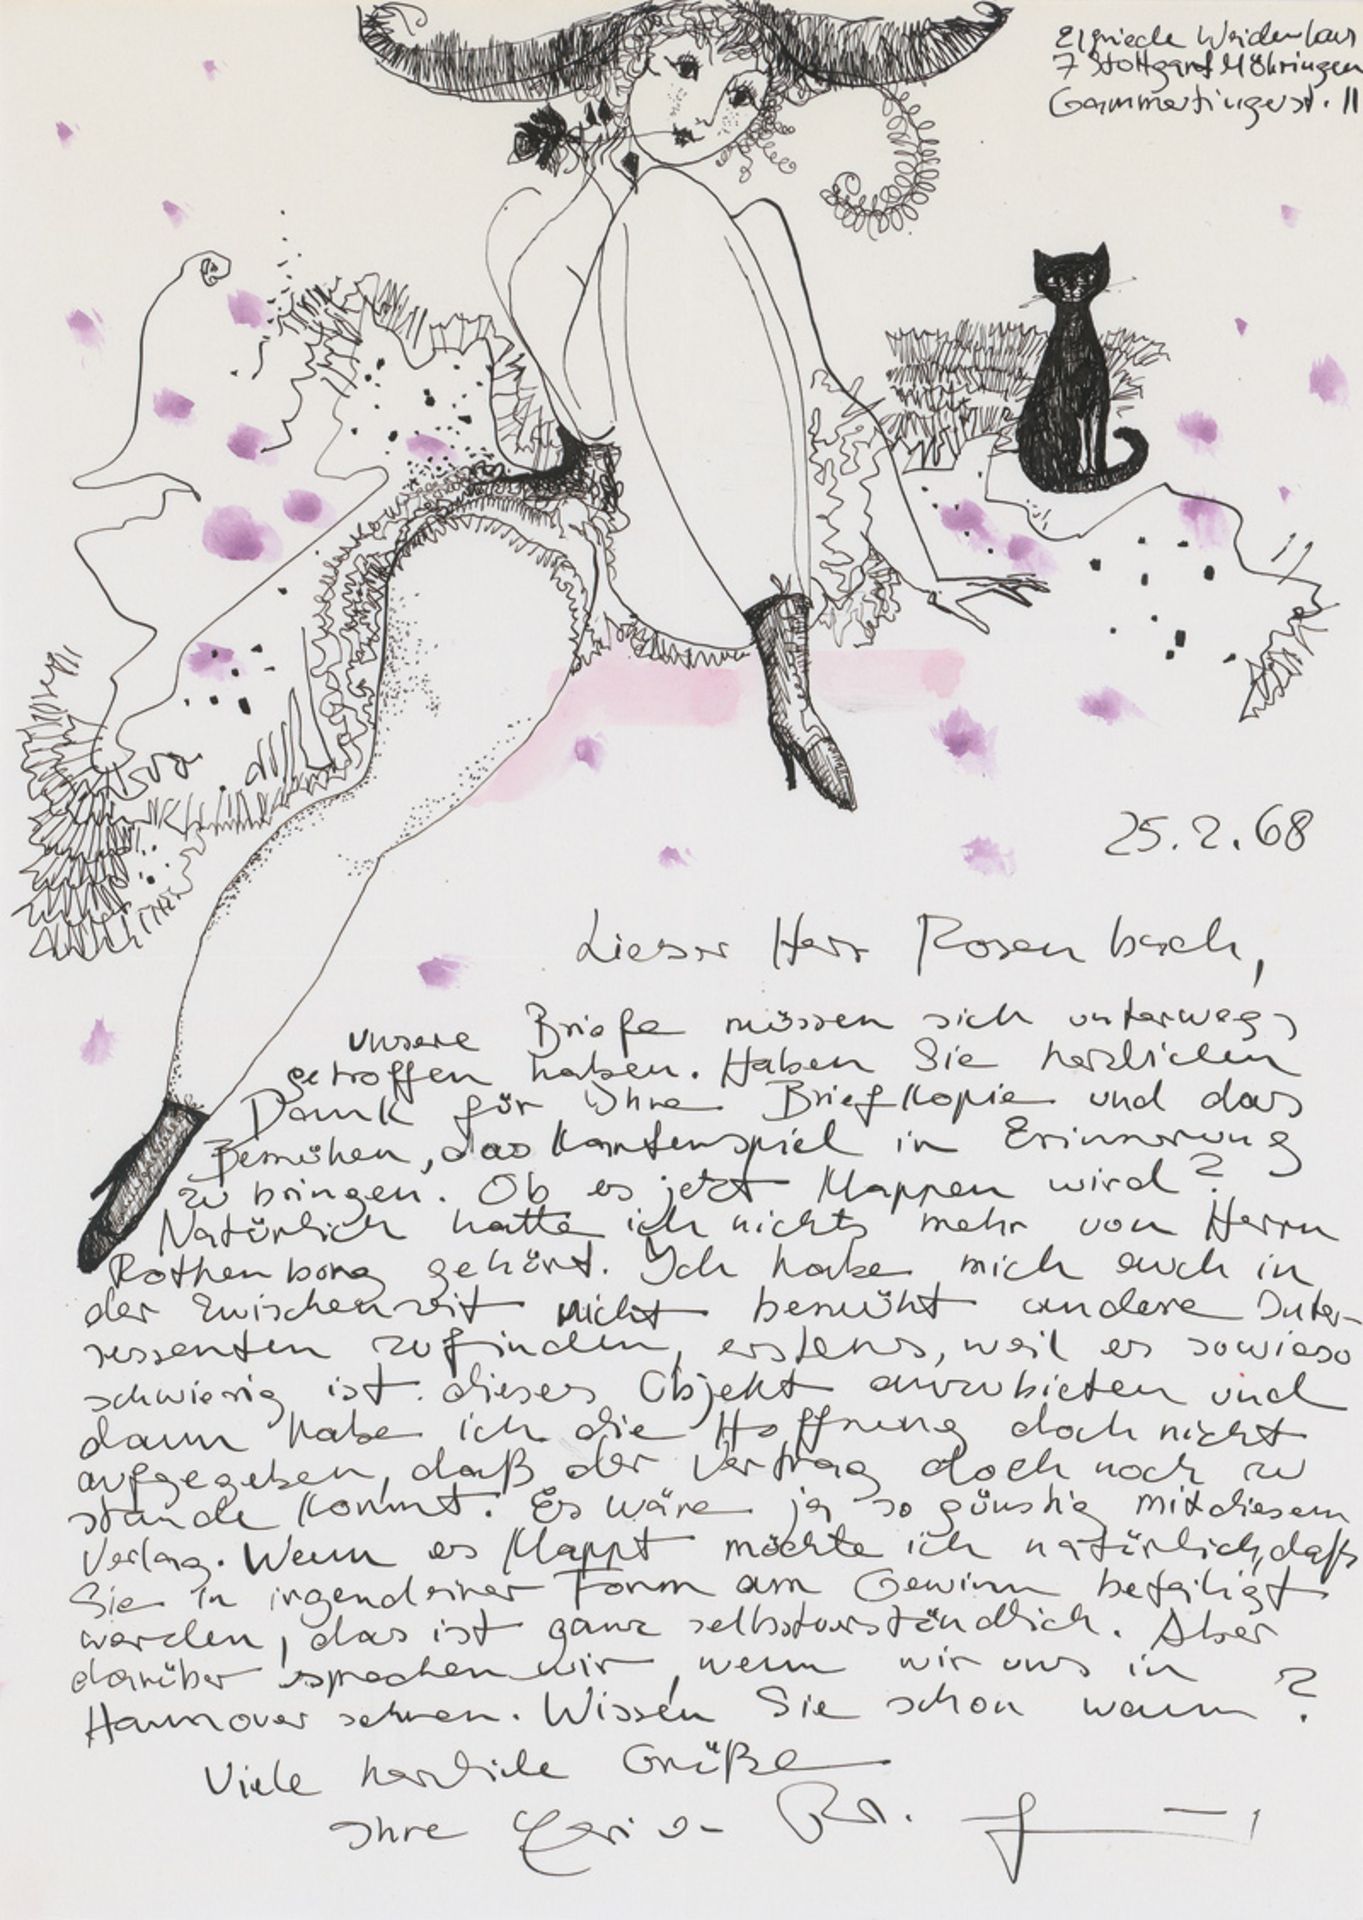 Elfriede Weidenhaus
7 Stuttgart Möhringen
Gammertingerst. 11
25.2.68
Lieber Herr Rosenbach,
unsere Briefe müssen sich unterwegs
getroffen haben. Haben Sie herzlichen
Dank für Ihre Briefkopie und das
Bemühen, das Kartenspiel in Erinnerung
zu bringen. Ob es jetzt klappen wird?
Natürlich hatte ich nichts mehr von Herrn
Rothenborg gehört. Ich habe mich auch in
der Zwischenzeit nicht bemüht andere Inter-
essenten zu finden, erstens, weil es sowieso
schwierig ist dieses Objekt anzubieten und
dann habe ich die Hoffnung doch nicht
aufgegeben, daß der Vertrag doch noch zu
stande kommt. Es wäre ja so günstig mit diesem
Verlag. Wenn es klappt möchte ich natürlich, daß
Sie in irgendeiner Form am Gewinn beteiligt
werden, das ist ganz selbstverständlich. Aber
darüber sprechen wir, wenn wir uns in
Hannover sehen. Wissen Sie schon wann?
Viele herzliche Grüße
Ihre